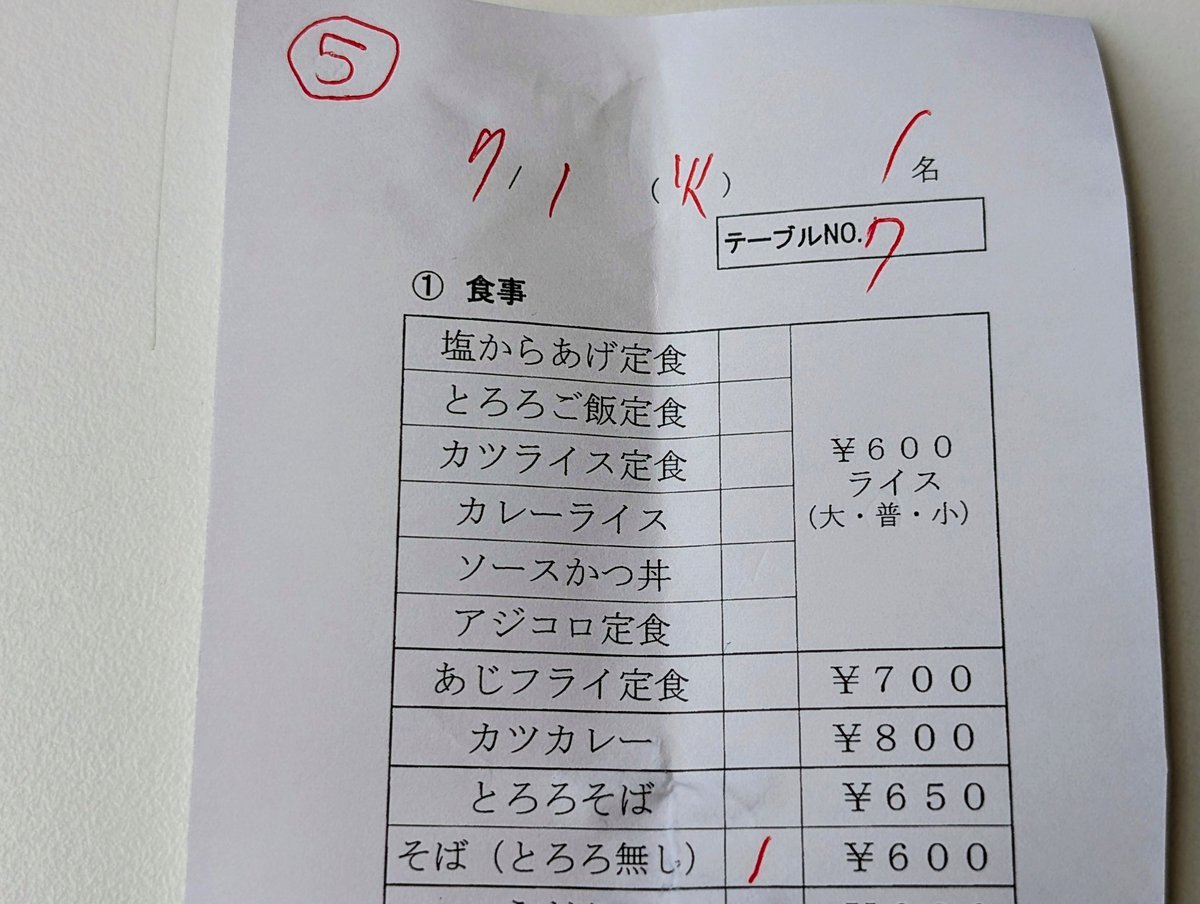 5
7/1 (火) 1名
テーブルNO.7
① 食事
塩からあげ定食
とろろご飯定食
カツライス定食
カレーライス
ソースかつ丼
アジコロ定食
¥600
ライス
(大・普・小)
あじフライ定食 ¥700
カツカレー ¥800
とろろそば ¥650
そば(とろろ無し) 1 ¥600